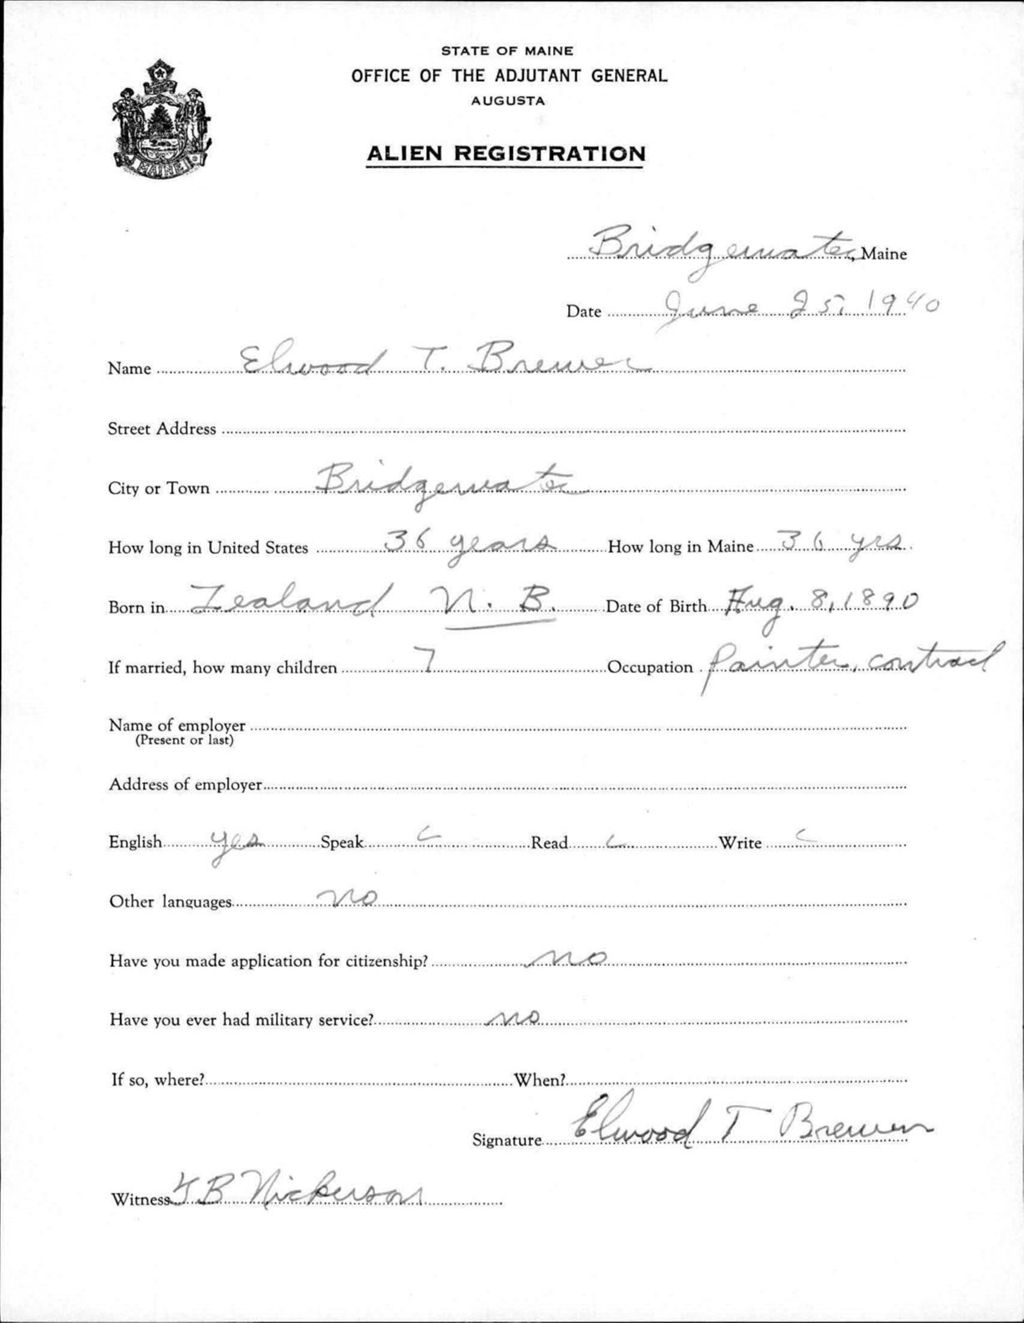 STATE OF MAINE
OFFICE OF THE ADJUTANT GENERAL
AUGUSTA
MAINE
ALIEN REGISTRATION
Bridgewater, Maine
Date June 25, 1940
Name Elwood T. Brewer
Street Address
City or Town Bridgewater
How long in United States 36 years How long in Maine 36 yrs.
Born in Zealand N. B. Date of Birth Aug. 8, 1890
If married, how many children 7 Occupation Painter, contract
Name of employer
(Present or last)
Address of employer
English yes Speak Read Write
Other languages no
Have you made application for citizenship? no
Have you ever had military service? no
If so, where? When?
Signature Elwood T Brewer
Witness B Nickerson